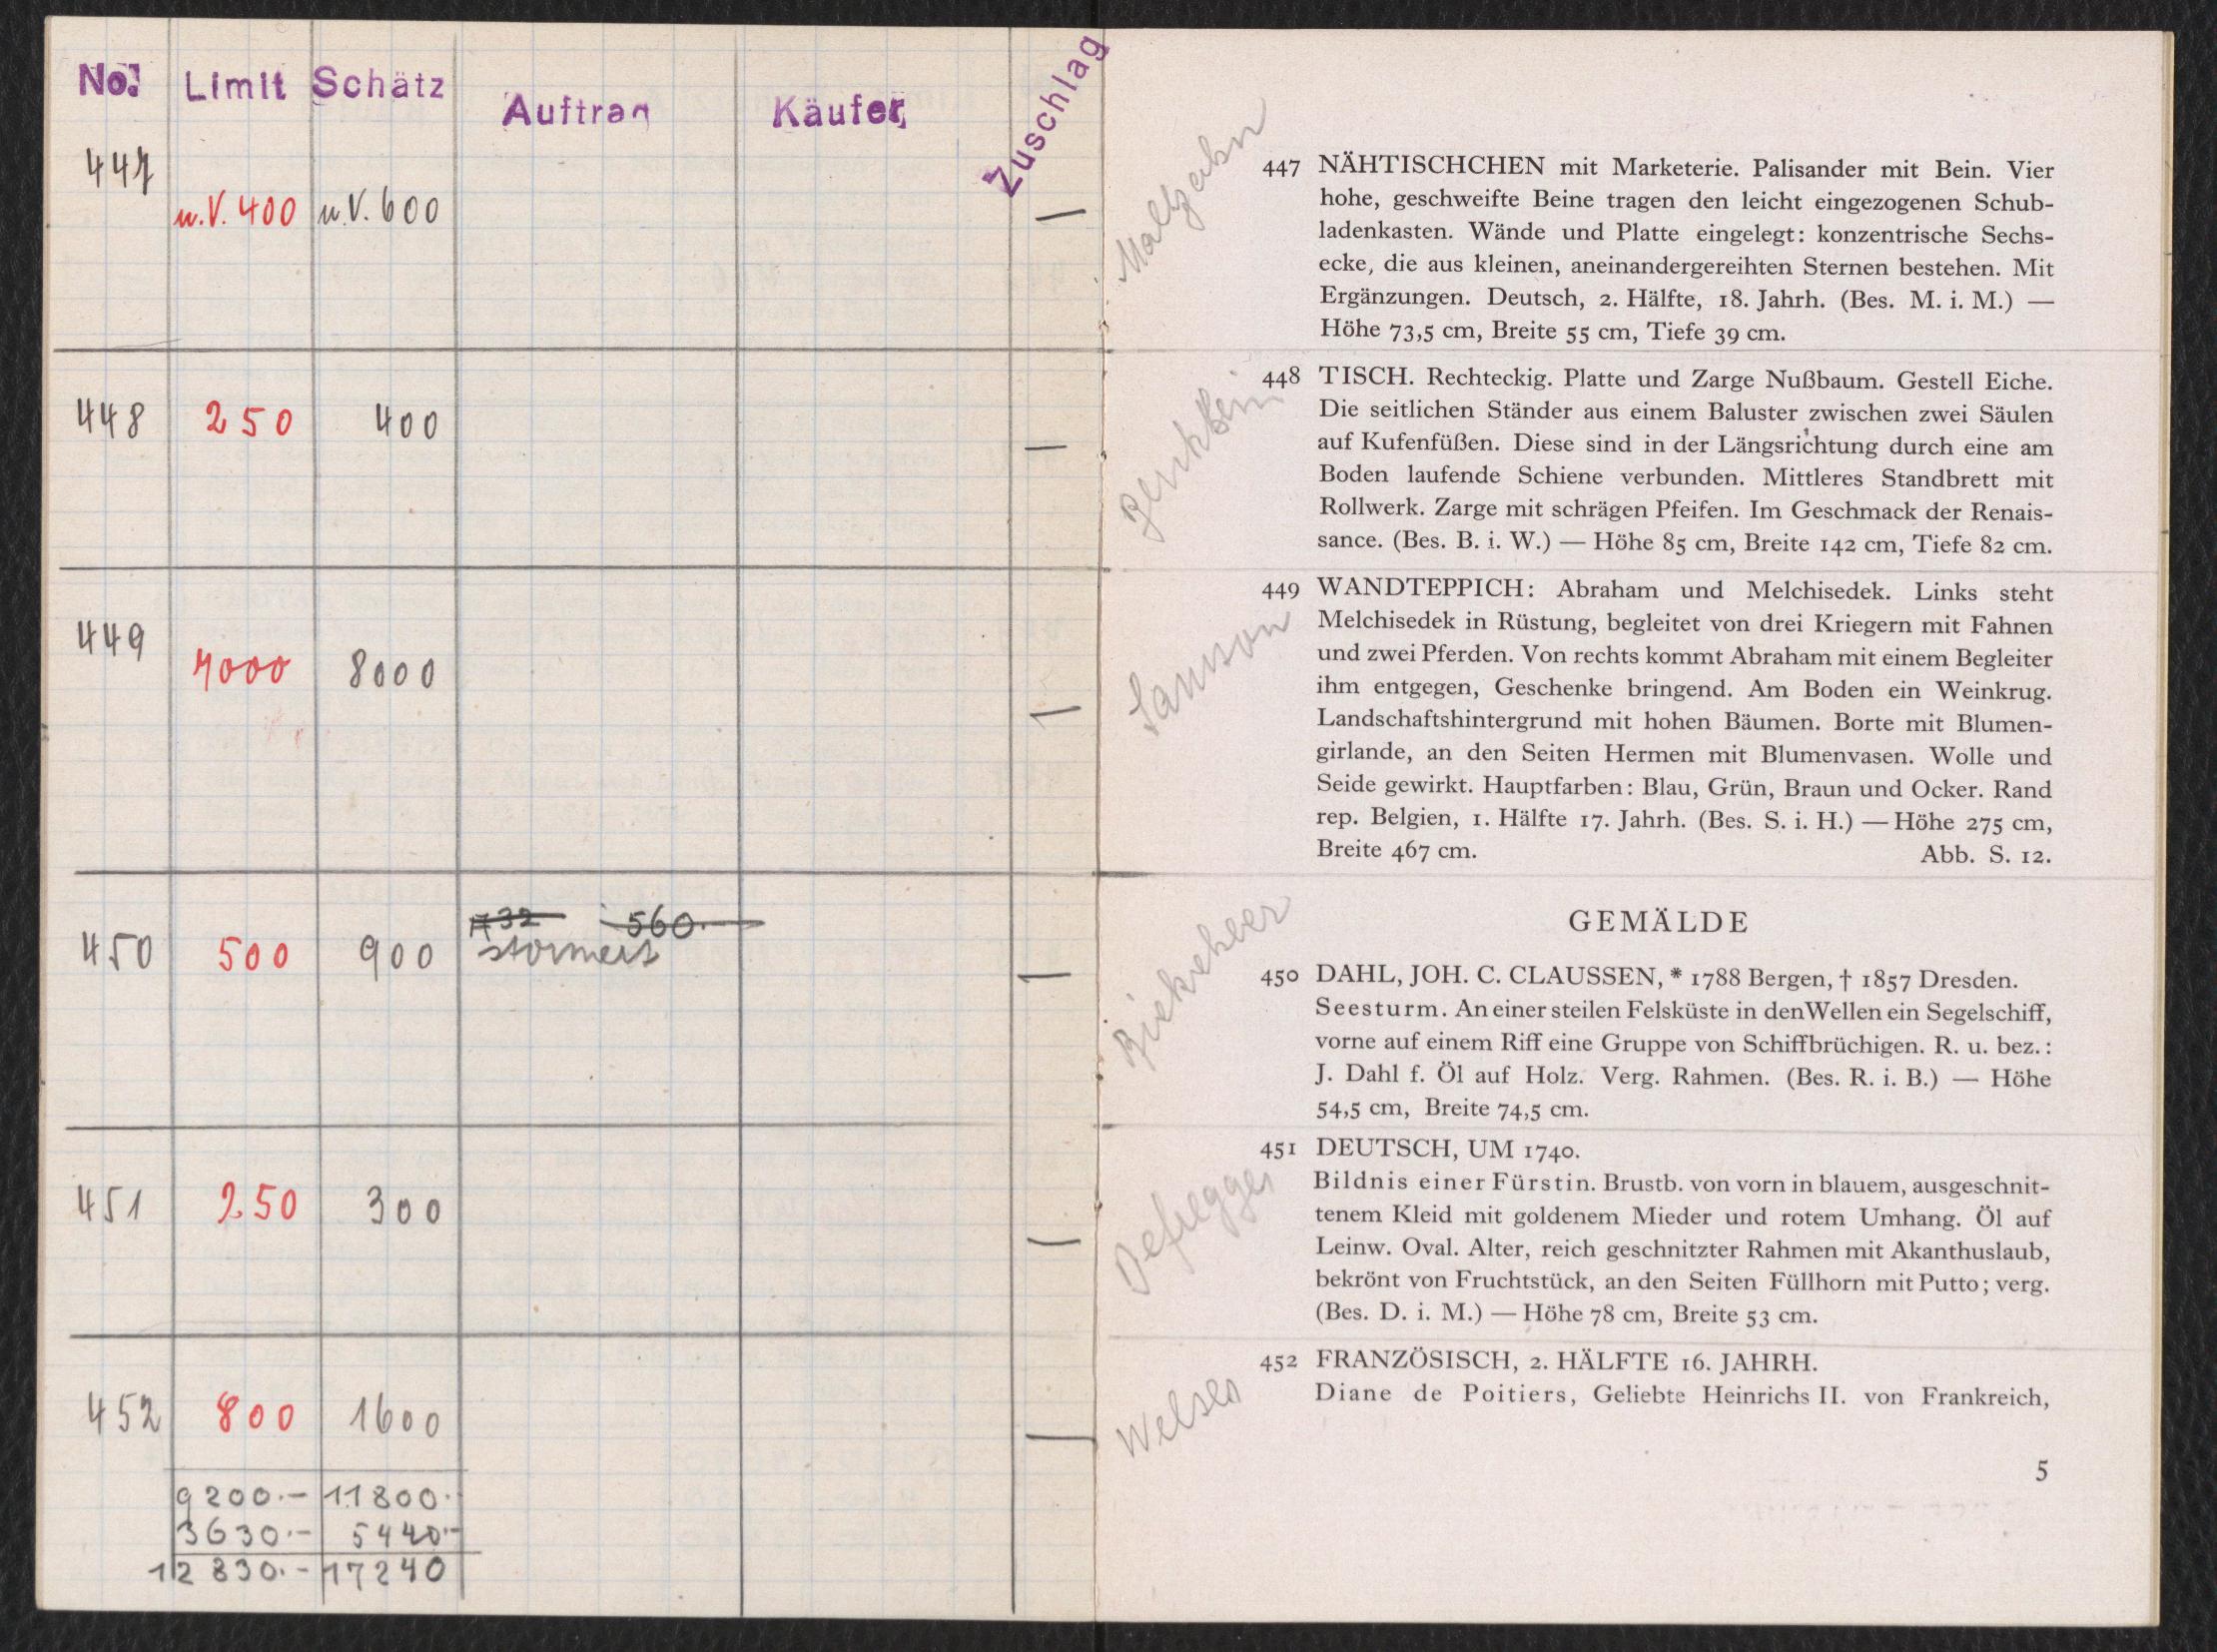 No. Limit Schätz Auftrag Käufer Zuschlag
447 u.V. 400 u.V. 600 —
448 250 400 —
449 7000 8000 —
450 500 900 560.— —
451 250 300 —
452 800 1600 —
9200.- 11800.-
3630.- 5440.-
12830.- 17240
447 NÄHTISCHCHEN mit Marketerie. Palisander mit Bein. Vier
hohe, geschweifte Beine tragen den leicht eingezogenen Schub-
ladenkasten. Wände und Platte eingelegt: konzentrische Sechs-
ecke, die aus kleinen, aneinandergereihten Sternen bestehen. Mit
Ergänzungen. Deutsch, 2. Hälfte, 18. Jahrh. (Bes. M. i. M.) —
Höhe 73,5 cm, Breite 55 cm, Tiefe 39 cm.
Maltzahn
448 TISCH. Rechteckig. Platte und Zarge Nußbaum. Gestell Eiche.
Die seitlichen Ständer aus einem Baluster zwischen zwei Säulen
auf Kufenfüßen. Diese sind in der Längsrichtung durch eine am
Boden laufende Schiene verbunden. Mittleres Standbrett mit
Rollwerk. Zarge mit schrägen Pfeifen. Im Geschmack der Renais-
sance. (Bes. B. i. W.) — Höhe 85 cm, Breite 142 cm, Tiefe 82 cm.
449 WANDTEPPICH: Abraham und Melchisedek. Links steht
Melchisedek in Rüstung, begleitet von drei Kriegern mit Fahnen
und zwei Pferden. Von rechts kommt Abraham mit einem Begleiter
ihm entgegen, Geschenke bringend. Am Boden ein Weinkrug.
Landschaftshintergrund mit hohen Bäumen. Borte mit Blumen-
girlande, an den Seiten Hermen mit Blumenvasen. Wolle und
Seide gewirkt. Hauptfarben: Blau, Grün, Braun und Ocker. Rand
rep. Belgien, 1. Hälfte 17. Jahrh. (Bes. S. i. H.) — Höhe 275 cm,
Breite 467 cm. Abb. S. 12.
GEMÄLDE
450 DAHL, JOH. C. CLAUSSEN, * 1788 Bergen, † 1857 Dresden.
Seesturm. An einer steilen Felsküste in den Wellen ein Segelschiff,
vorne auf einem Riff eine Gruppe von Schiffbrüchigen. R. u. bez.:
J. Dahl f. Öl auf Holz. Verg. Rahmen. (Bes. R. i. B.) — Höhe
54,5 cm, Breite 74,5 cm.
451 DEUTSCH, UM 1740.
Bildnis einer Fürstin. Brustb. von vorn in blauem, ausgeschnit-
tenem Kleid mit goldenem Mieder und rotem Umhang. Öl auf
Leinw. Oval. Alter, reich geschnitzter Rahmen mit Akanthuslaub,
bekrönt von Fruchtstück, an den Seiten Füllhorn mit Putto; verg.
(Bes. D. i. M.) — Höhe 78 cm, Breite 53 cm.
Defregger
452 FRANZÖSISCH, 2. HÄLFTE 16. JAHRH.
Diane de Poitiers, Geliebte Heinrichs II. von Frankreich,
5